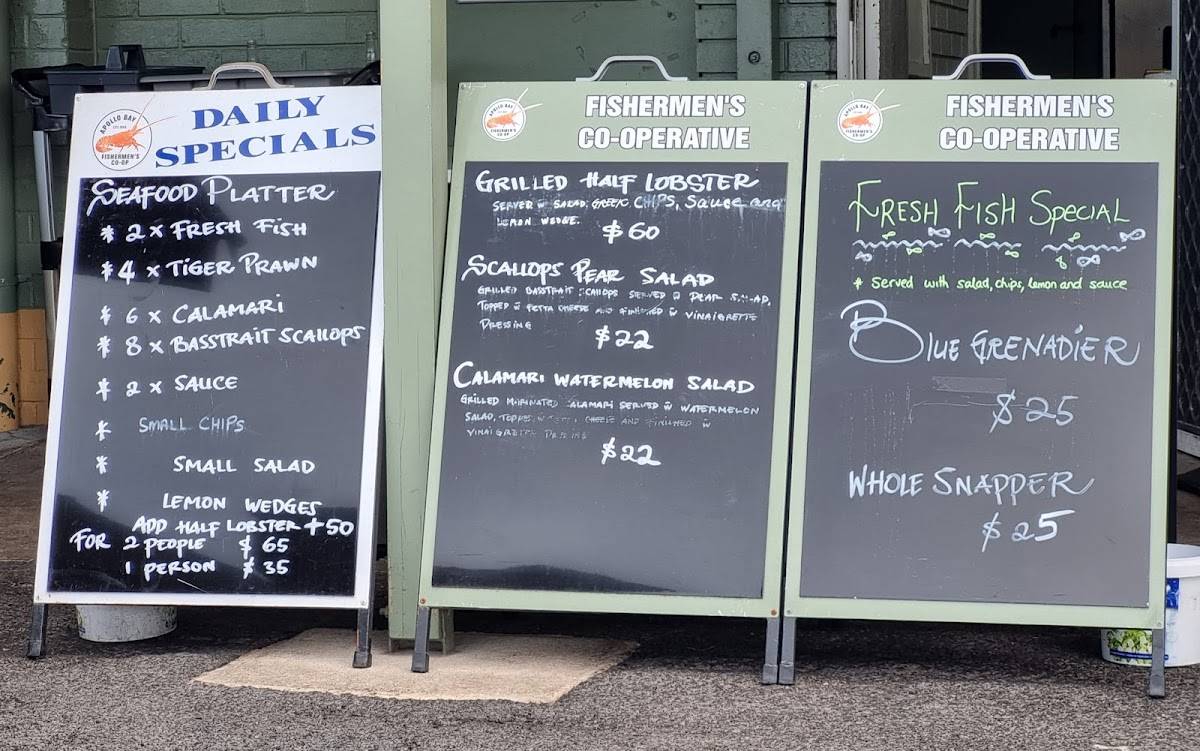 APOLLO BAY
FISHERMEN'S
CO-OP
DAILY
SPECIALS
SEAFOOD PLATTER
* 2 x FRESH FISH
* 4 x TIGER PRAWN
* 6 x CALAMARI
* 8 x BASSTRAIT SCALLOPS
* 2 x SAUCE
* SMALL CHIPS
* SMALL SALAD
* LEMON WEDGES
ADD HALF LOBSTER +50
FOR 2 PEOPLE $ 65
1 PERSON $ 35
APOLLO BAY
FISHERMEN'S
CO-OP
FISHERMEN'S
CO-OPERATIVE
GRILLED HALF LOBSTER
SERVED w SALAD, GREEK CHIPS, Sauce and
LEMON WEDGE.
$60
SCALLOPS PEAR SALAD
GRILLED BASSTRAIT SCALLOPS SERVED w PEAR SALAD,
TOPPED w FETTA CHEESE AND FINISHED w VINAIGRETTE
DRESSING
$22
CALAMARI WATERMELON SALAD
GRILLED MARINATED CALAMARI SERVED w WATERMELON
SALAD, TOPPED w CHEESE AND FINISHED w
VINAIGRETTE DRESSING
$22
APOLLO BAY
FISHERMEN'S
CO-OP
FISHERMEN'S
CO-OPERATIVE
FRESH FISH SPECIAL
* Served with salad, chips, lemon and sauce
BLUE GRENADIER
$25
WHOLE SNAPPER
$25